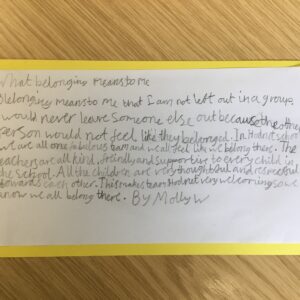 What belonging means to me
Belonging means to me that I am not left out in a group. I
would never leave someone else out because the other
person would not feel like they belonged. In Hodnet school
we are all one fabulous team and we all feel like we belong there. The
teachers are all kind, friendly and supportive to every child in
the school. All the children are very thoughtful and respectful
towards each other. This makes team Hodnet very welcoming so we
know we all belong there. By Molly W